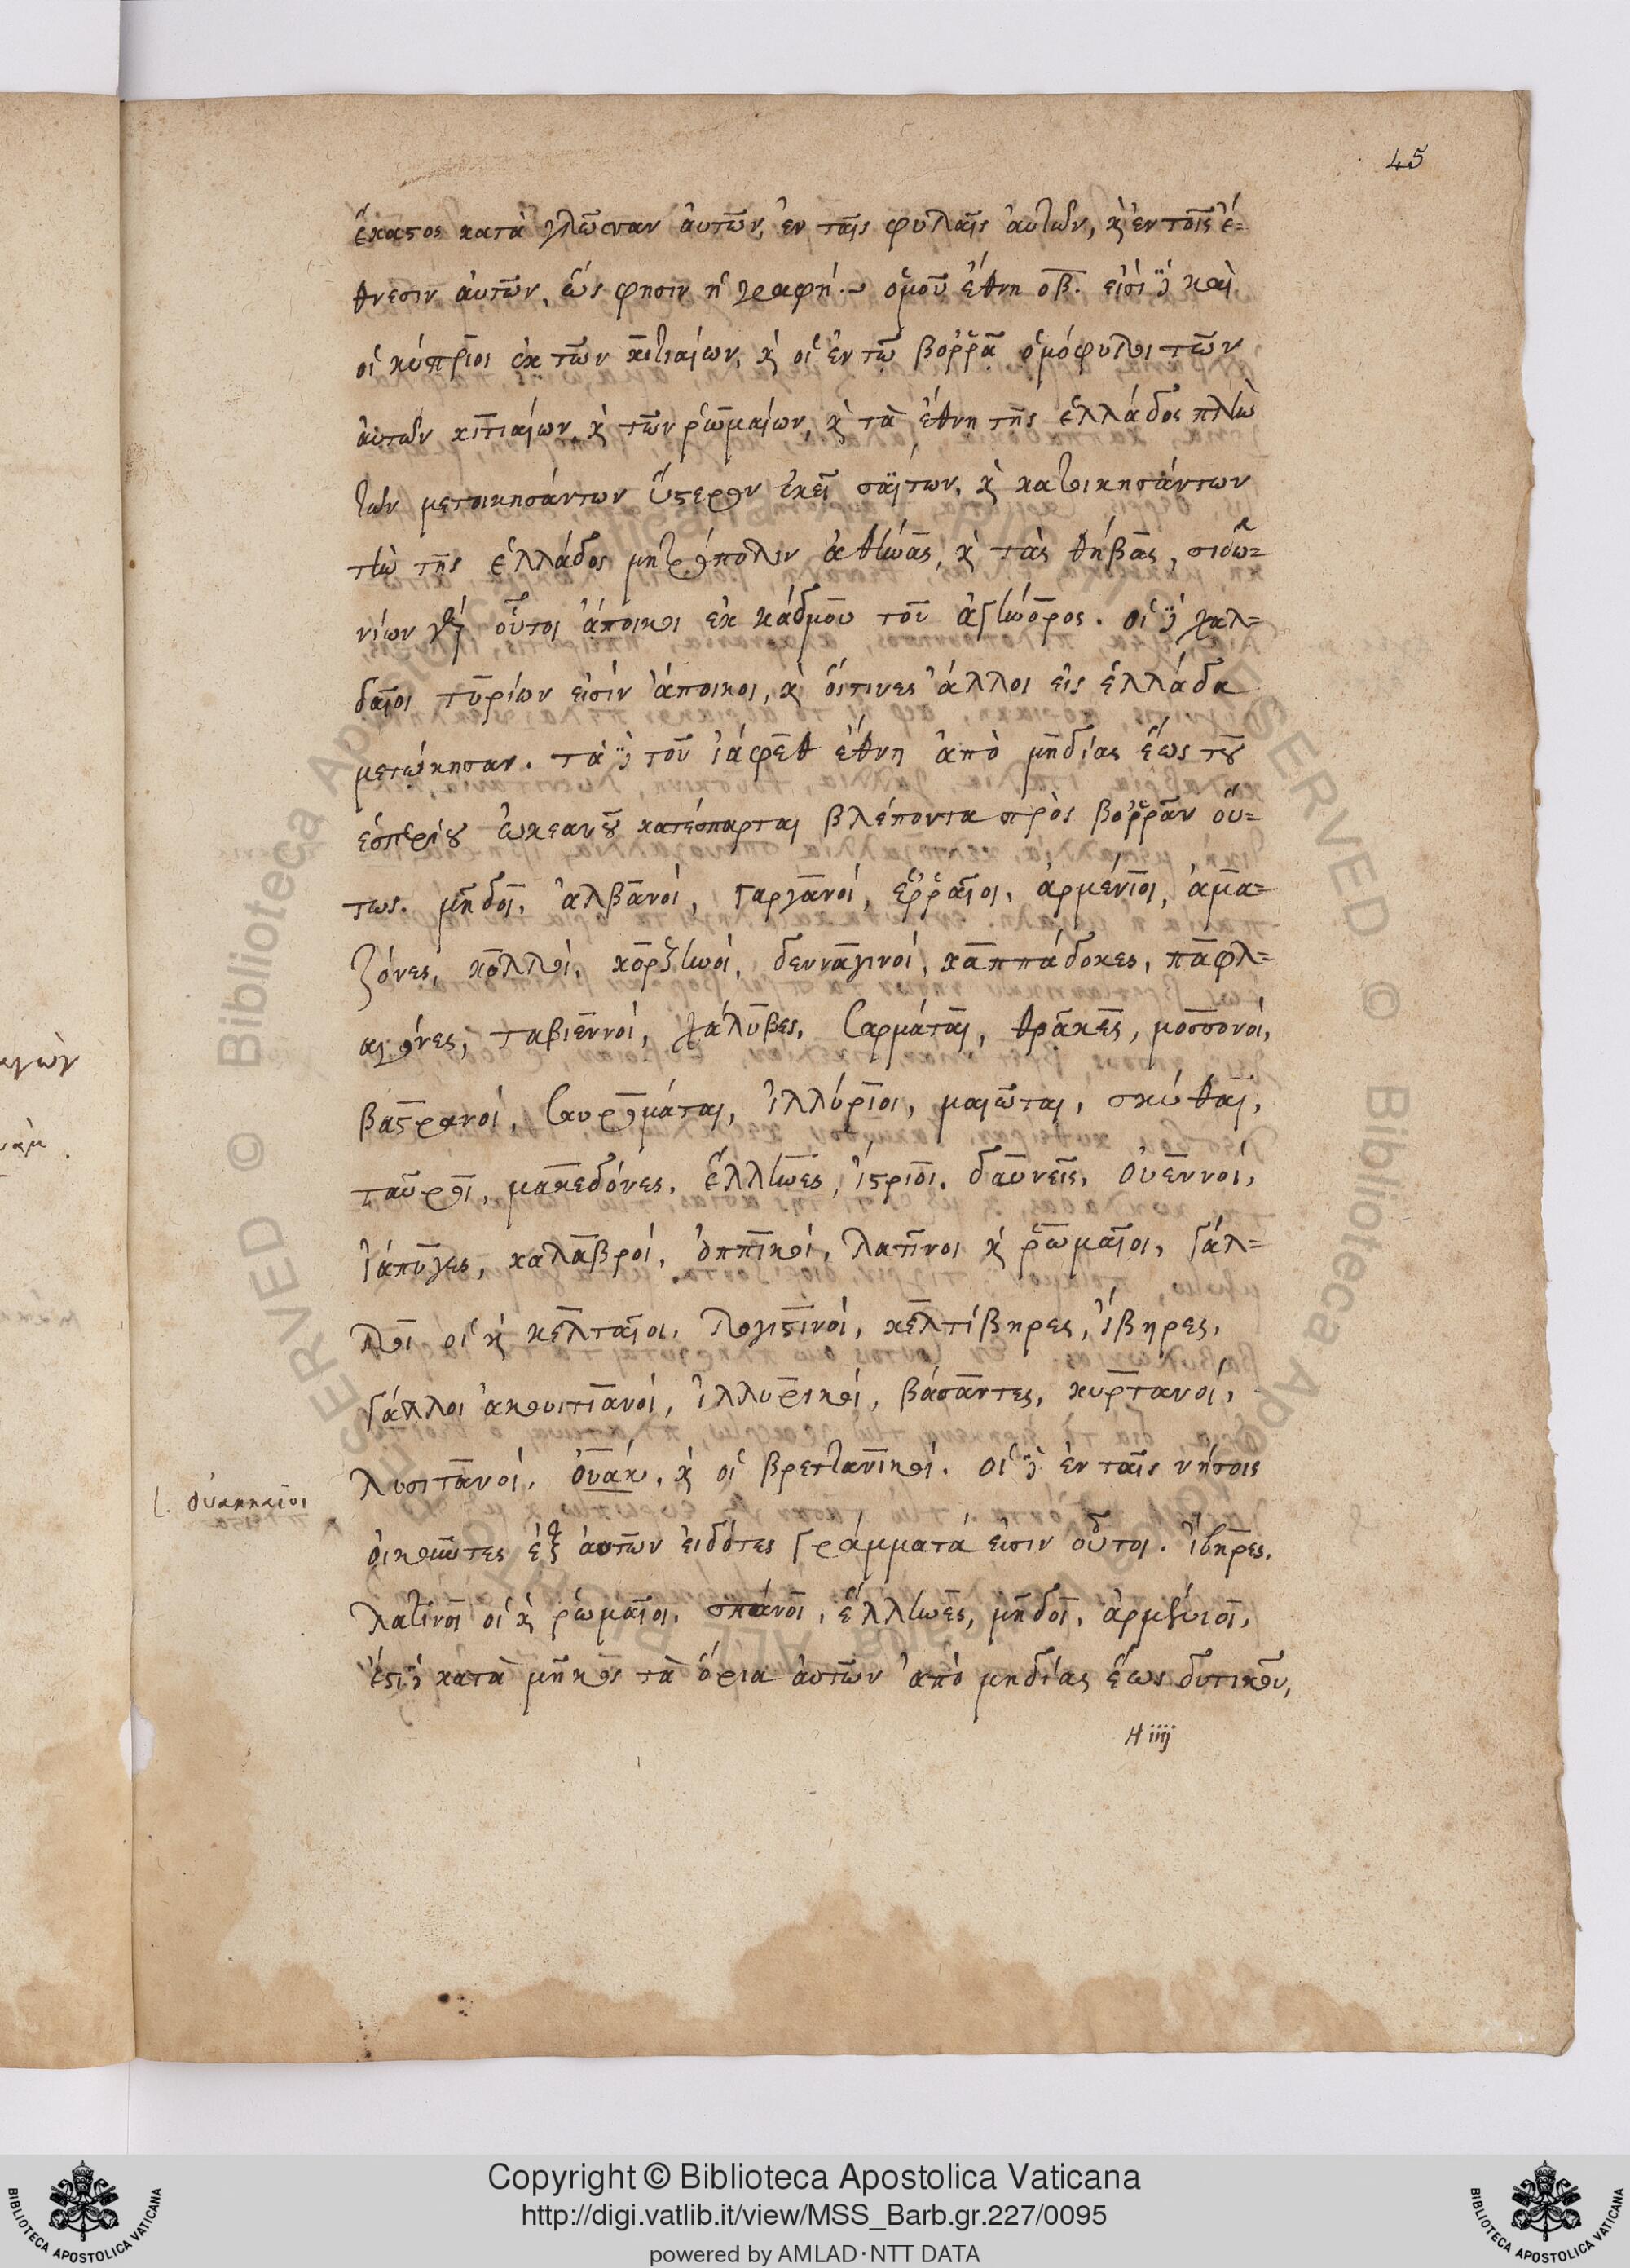 45
ἕκαστος κατὰ γλῶσσαν ἀυτῶν, ἐν ταῖς φυλαῖς ἀυτῶν, κὶ ἐν τοῖς ἔ=
θνεσιν ἀυτῶν, ὥς φησιν ἡ γραφή. ὁμοῦ ἔθνη οβ. εἰσὶ δὲ καὶ
οἱ κύπριοι ἐκ τῶν κιτιαίων, κὶ οἱ ἐν τῶ βορρᾶ ὁμόφυλοι τῶν
ἀυτῶν κιτιαίων, κὶ τῶν ῥωμαίων, κὶ τὰ ἔθνη τῆς ἑλλάδος πλὴν
τῶν μετοικησάντων ὕστερον ἐκεῖ σαϊτων, κὶ κατοικησάντων
τὴν τῆς ἑλλάδος μητρόπολιν ἀθήνας, κὶ τὰς θήβας, σιδω=
νίων γὰρ οὗτοι ἄποικοι ἐκ κάδμου τοῦ ἀγήνορος. οἱ δὲ χαλ=
δαῖοι τυρίων εἰσὶν ἄποικοι, κὶ ὅιτινες ἄλλοι εἰς ἑλλάδα
μετώκησαν. τὰ δὲ τοῦ ἰάφεθ ἔθνη ἀπὸ μηδίας ἕως τοῦ
ἑσπερίου ὠκεανοῦ κατέσπαρται βλέποντα πρὸς βορρᾶν οὕ=
τως. μῆδοι, ἀλβανοί, γαργανοί, ἐρραῖοι, ἀρμένιοι, ἀμα=
ζόνες, κόλλοι, κορζηνοί, δενναγινοί, καππάδοκες, παφλ=
αγόνες, ταβιεννοί, χάλυβες, σαρμάται, θρᾶκες, μοσσονοί,
βαστρανοί, σαυρομάται, ἰλλύριοι, μαιῶται, σκύθαι,
ταῦροι, μακεδόνες, ἕλληνες, ἴστριοι, δαυνεῖς, ὀυεννοί,
ἰάπυγες, καλαβροί, ὀππικοί, λατῖνοι κὶ ῥωμαῖοι, γάλ=
λοι οἱ κὶ κελταῖοι, λογιστινοί, κελτίβηρες, ἴβηρες,
γάλλοι ἀκουιτιανοί, ἰλλυρικοί, βάσαντες, κυρτανοί,
λυσιτανοί, ὀυάκ, κὶ οἱ βρεττανικοί. οἱ δὲ ἐν ταῖς νήσοις
l. ὀυακκαῖοι
οἰκοῦντες ἐξ ἀυτῶν εἰδότες γράμματά εἰσιν οὗτοι. ἴβηρες,
λατῖνοι οἱ κὶ ῥωμαῖοι, σπάνοι, ἕλληνες, μῆδοι, ἀρμένιοι,
ἔστι δὲ κατὰ μῆκος τὰ ὅρια ἀυτῶν ἀπὸ μηδίας ἕως δυτικοῦ,
H iiij
Copyright © Biblioteca Apostolica Vaticana
http://digi.vatlib.it/view/MSS_Barb.gr.227/0095
powered by AMLAD·NTT DATA
BIBLIOTECA APOSTOLICA VATICANA
BIBLIOTECA APOSTOLICA VATICANA